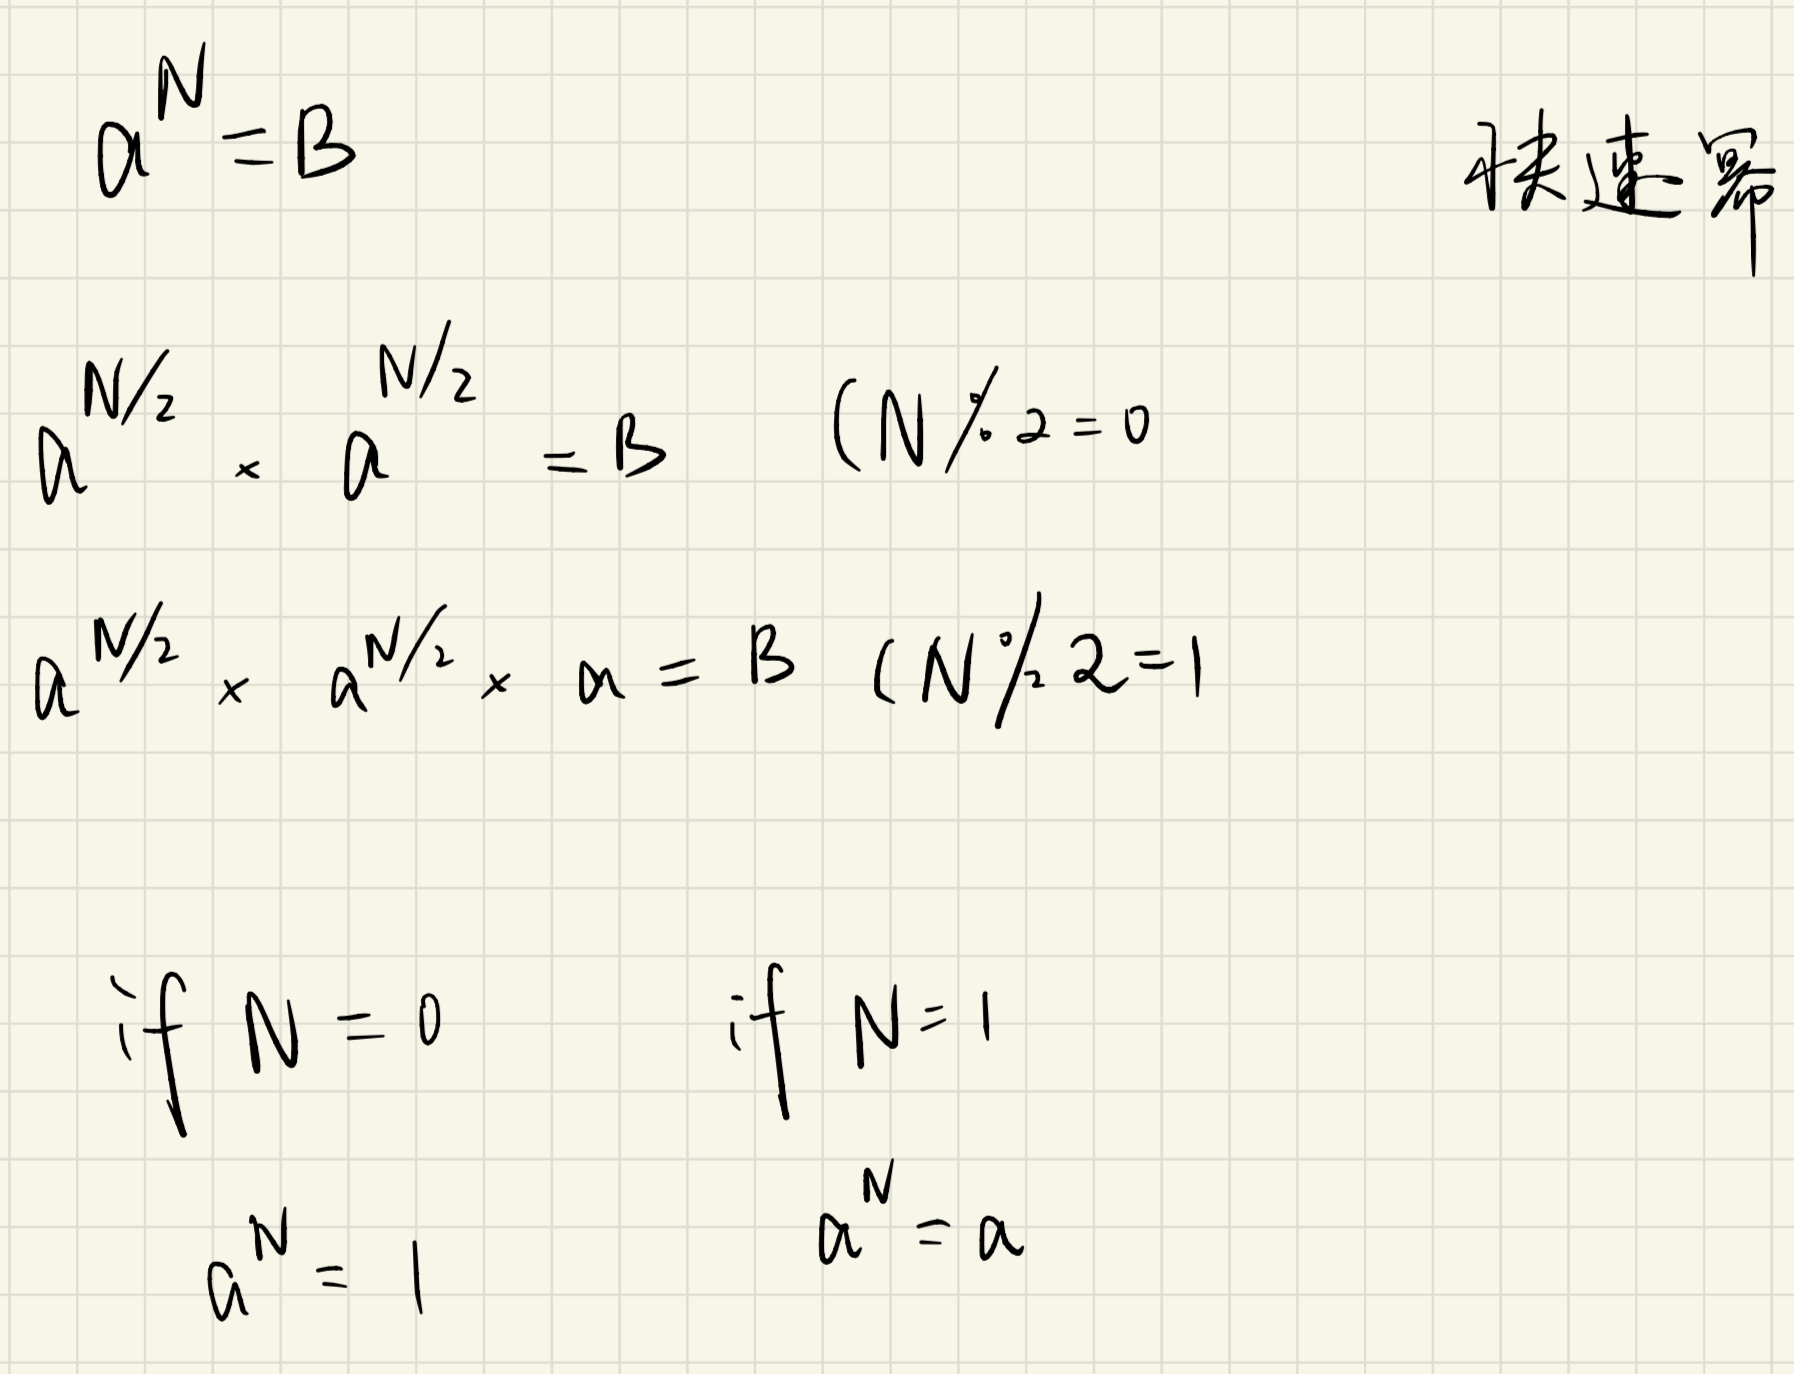 a^N = B
快速幂
a^N/2 × a^N/2 = B (N % 2 = 0
a^N/2 × a^N/2 × a = B (N % 2 = 1
if N = 0 if N = 1
a^N = 1 a^N = a